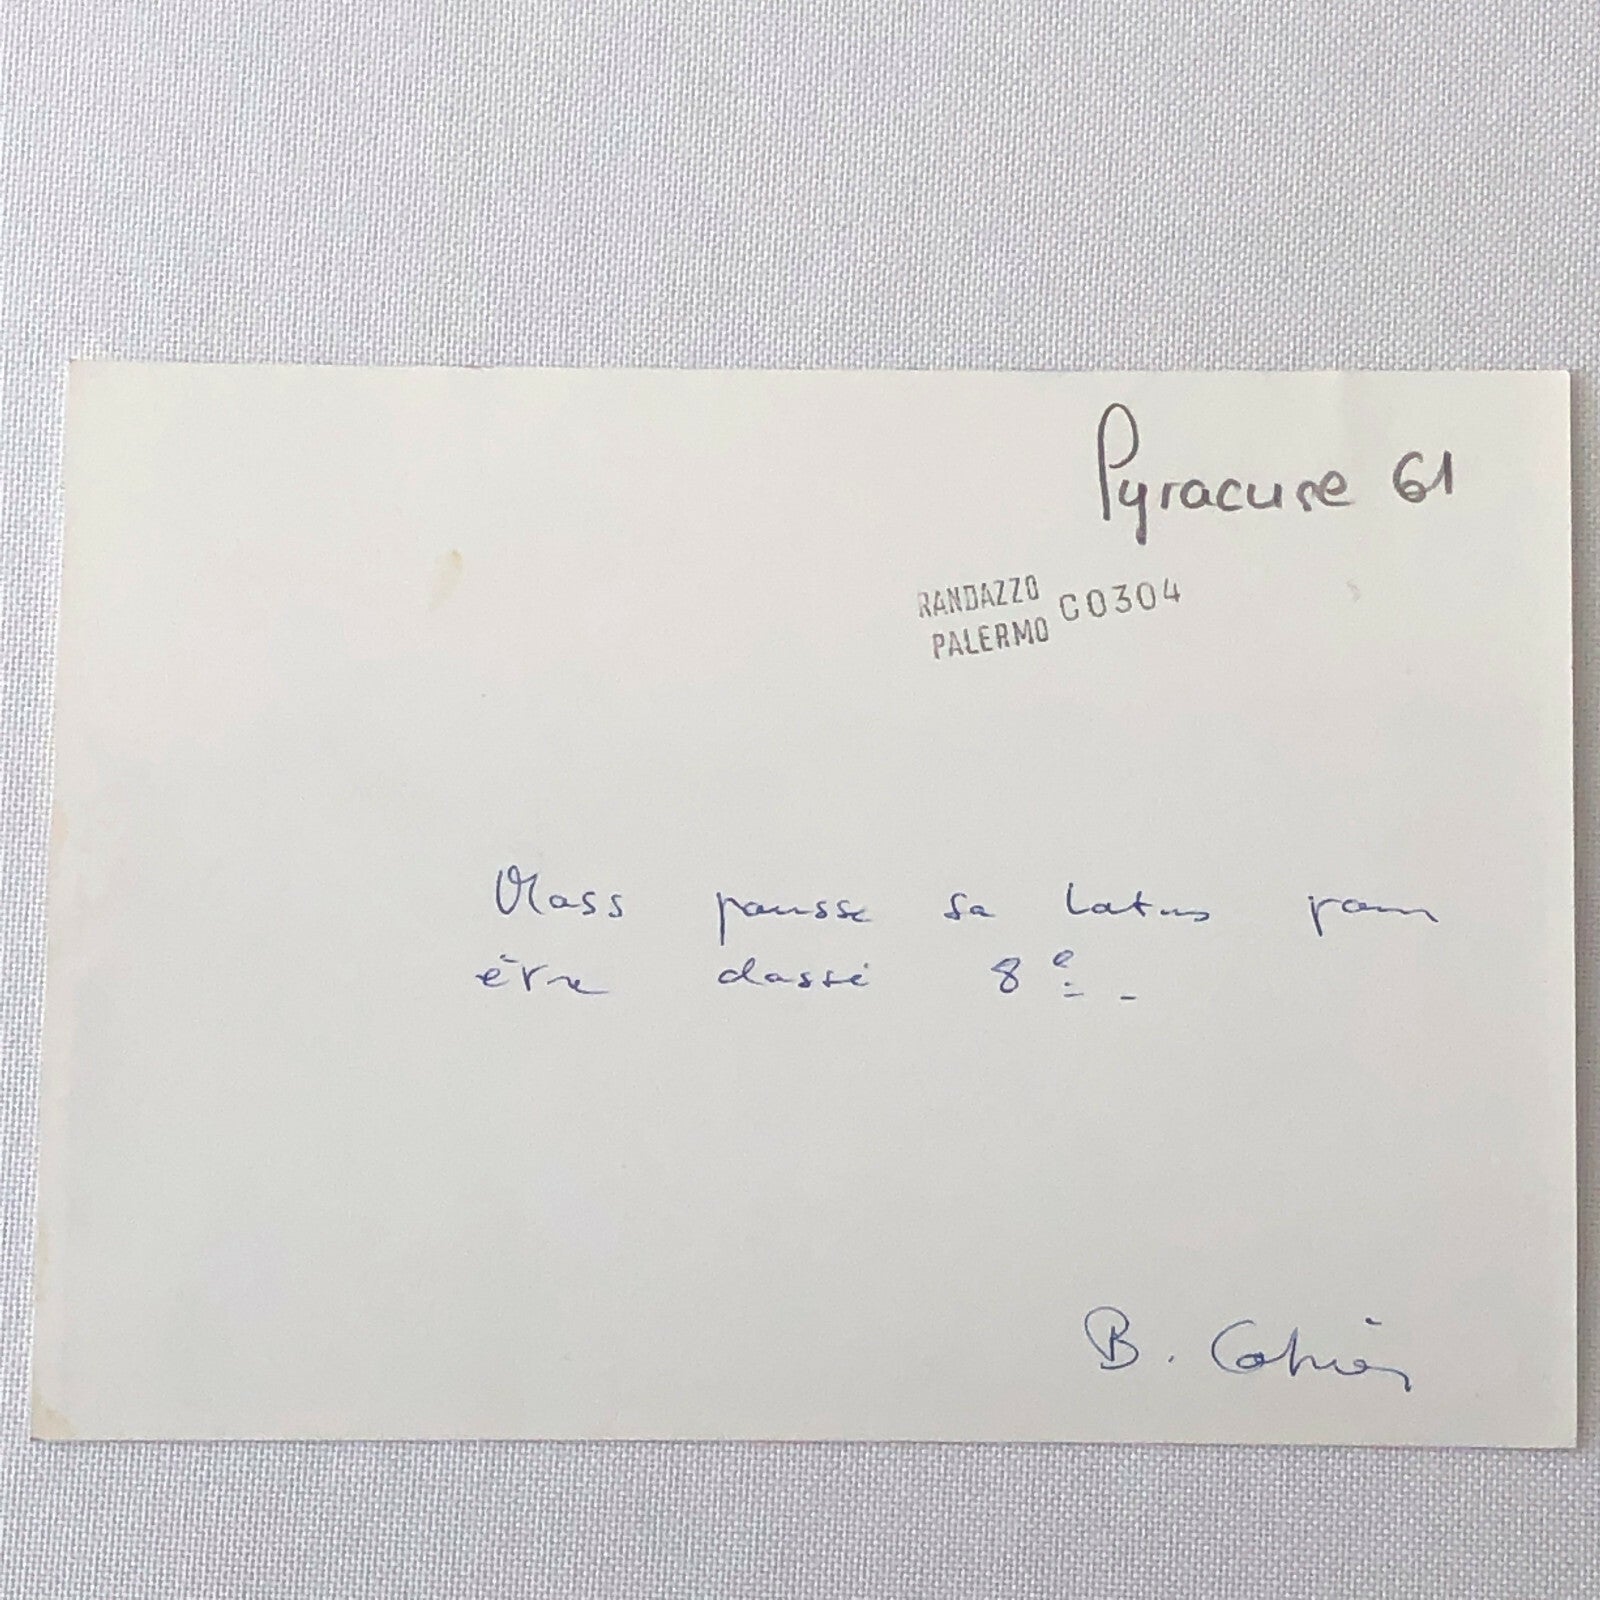 Pyracuse 61
RANDAZZO
PALERMO C0304
Moss pousse sa Lotus pour
être classé 8e.-
B. Cahier